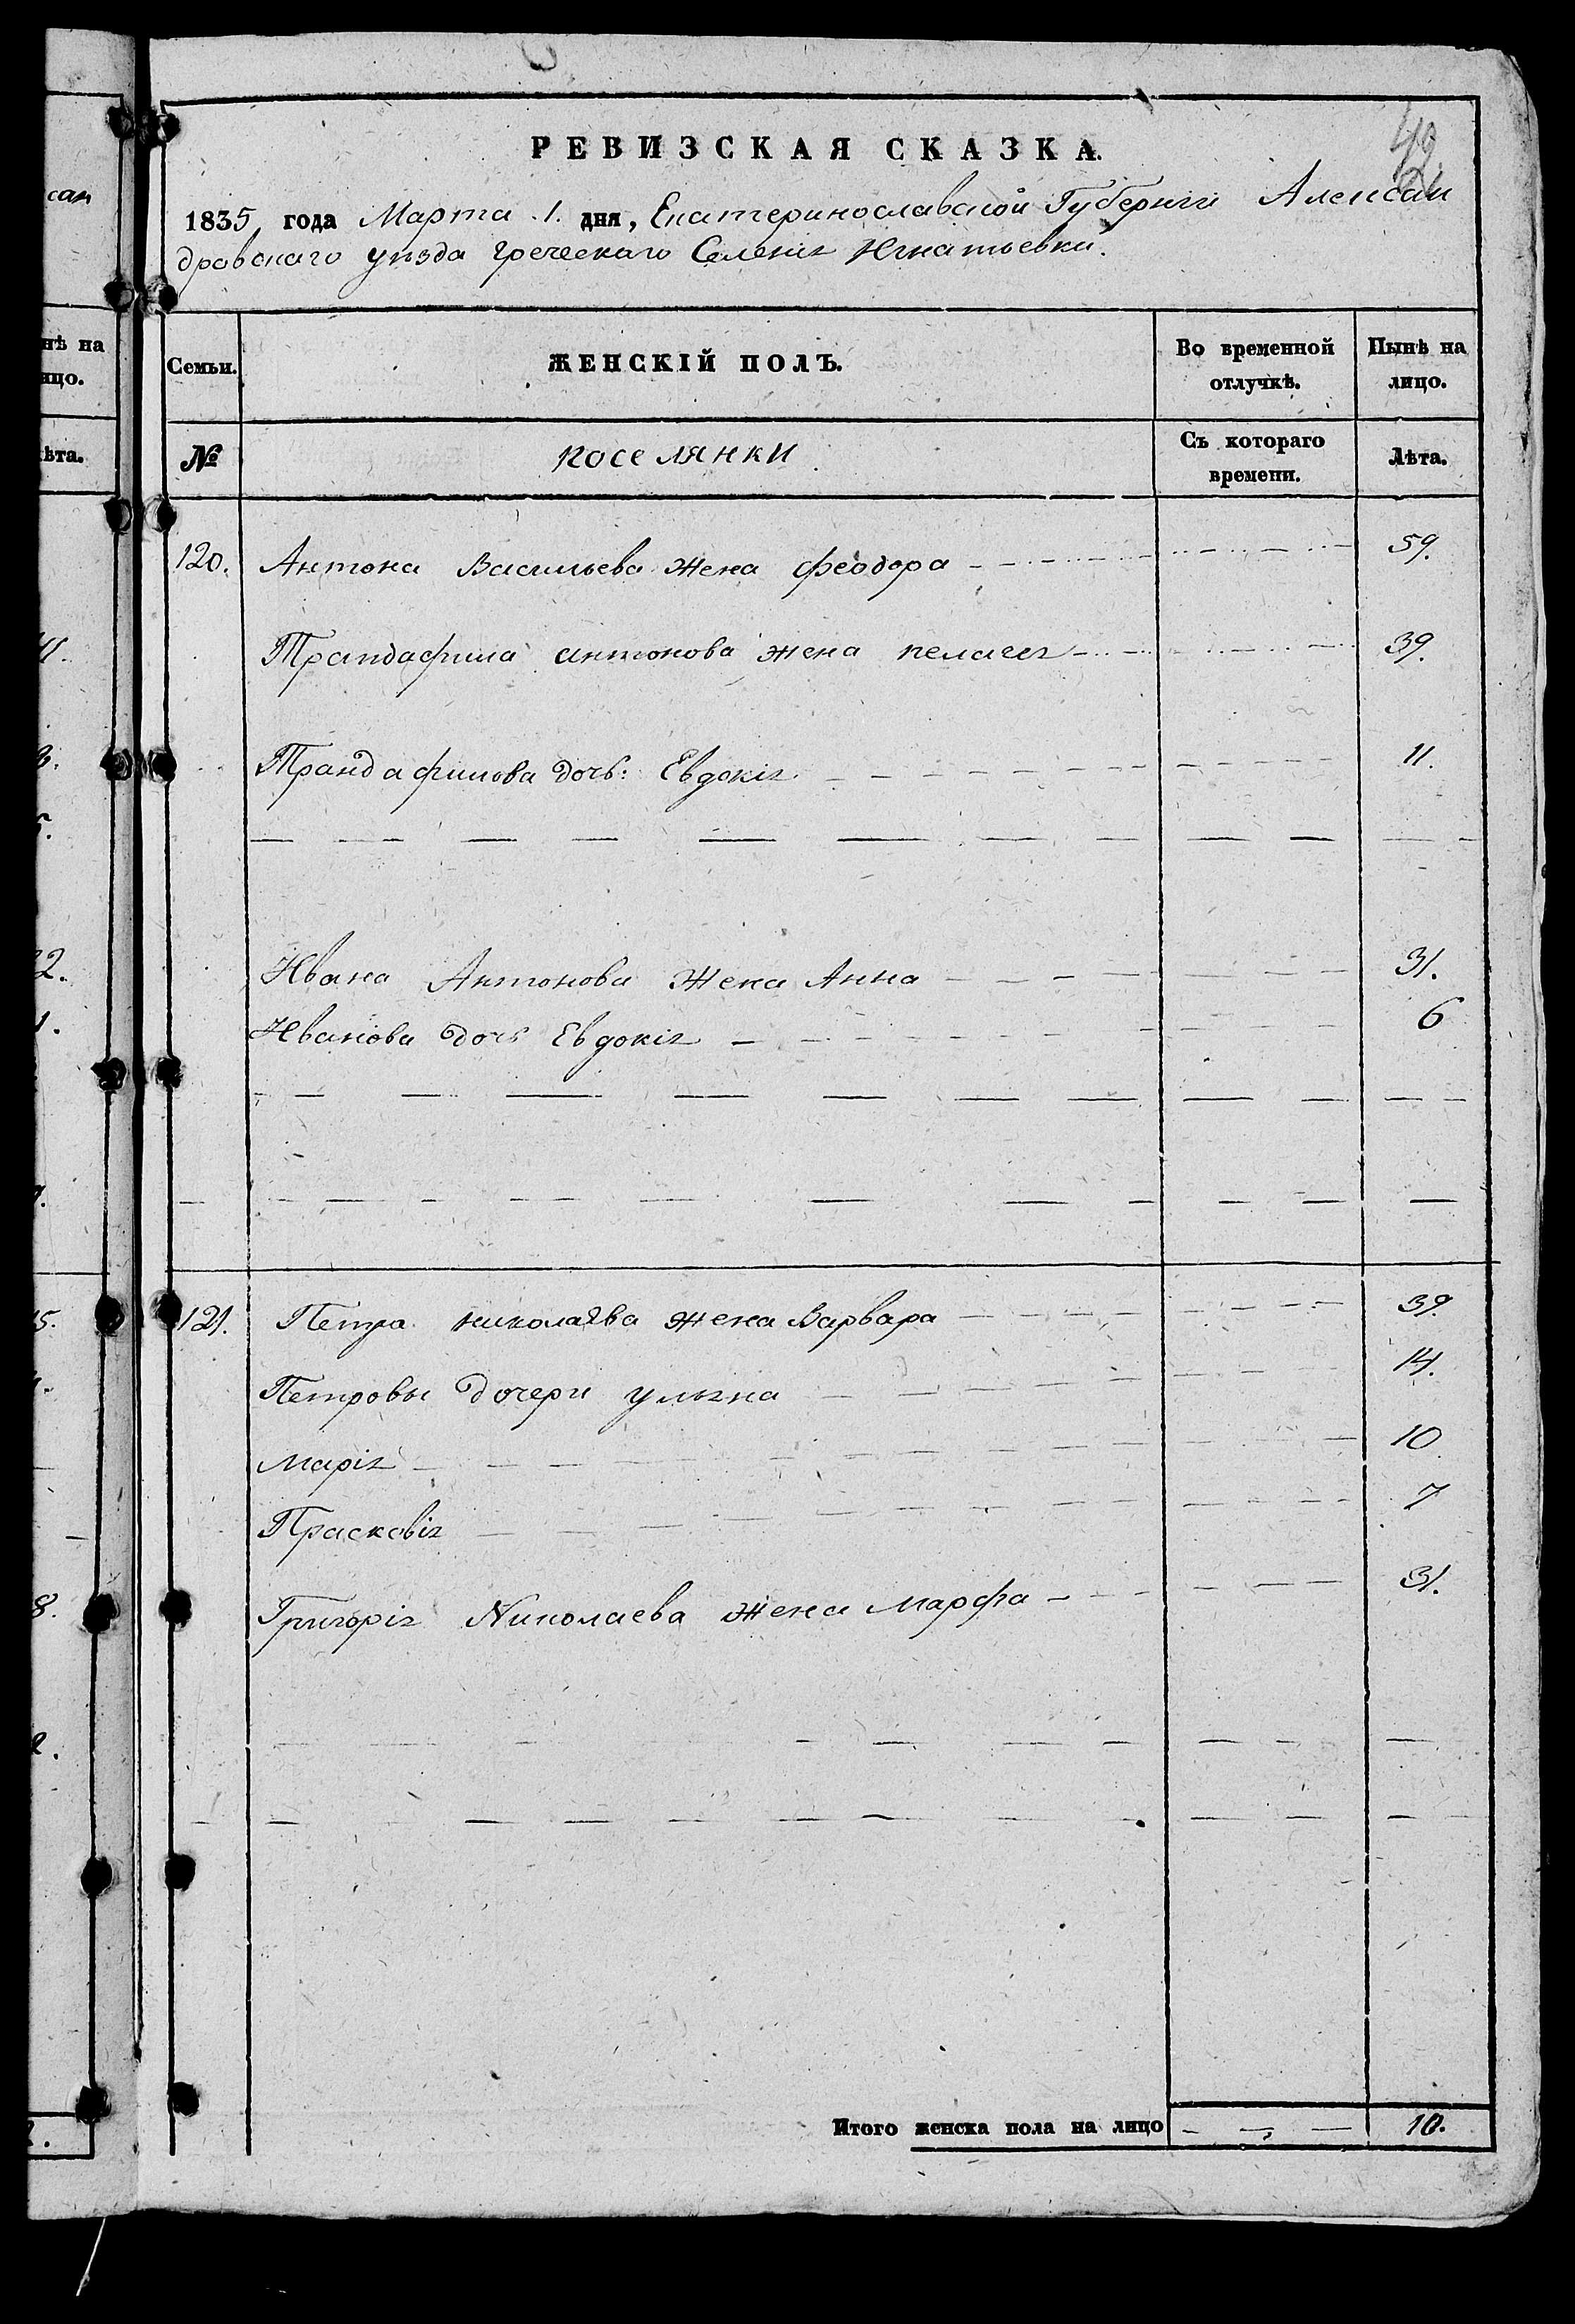 сан
нѣ на
ицо.
ѣта.
49.
РЕВИЗСКАЯ СКАЗКА.
1835 года Марта 1. дня, Екатеринославской Губерніи Алексан
дровскаго уѣзда греческаго Селенія Игнатьевки.
Семьи. ЖЕНСКІЙ ПОЛЪ. Во временной отлучкѣ. Нынѣ на лицо.
№ поселянки Съ котораго времени. Лѣта.
120. Антона Васильева жена феодора 59.
Трандафила антонова жена пелагея 39.
Трандафилова дочь: Евдокія 11.
Ивана Антонова жена Анна 31.
Иванова дочь Евдокія 6
121. Петра николаева жена Варвара 39.
Петровы дочери ульяна 14.
марія 10
Прасковія 7
Григорія Николаева жена марфа 31.
Итого женска пола на лицо 10.